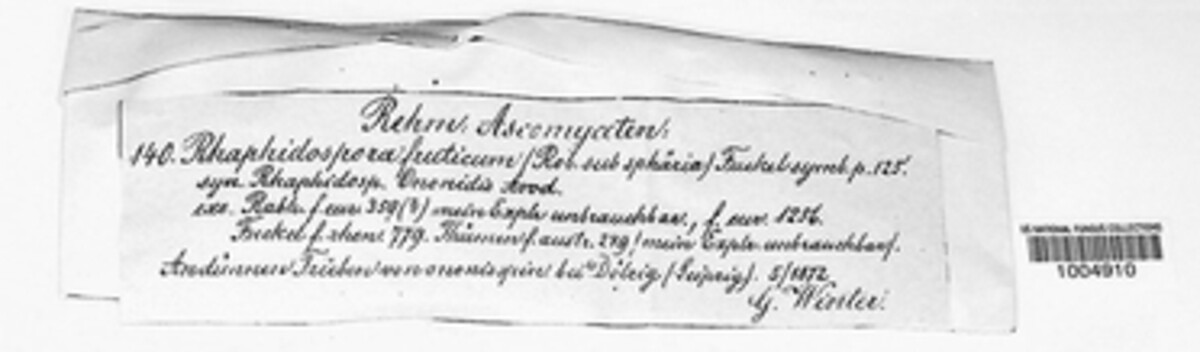 Rehm. Ascomyceten.
140. Rhaphidospora fruticum (Rob. sub sphäria) Fuckel symb. p. 125.
syn. Rhaphidosp. Ononidis Awd.
exs. Rabh. f. eur. 359 (?) mein Explr unbrauchbar., f. eur. 1236.
Fuckel f. rhen. 779. Thümen f. austr. 249 / mein Explr. unbrauchbar/.
An dünnen Trieben von ononis spin bei Dölzig (Leipzig). 5/1872
G. Winter.
US NATIONAL FUNGUS COLLECTIONS
1004910